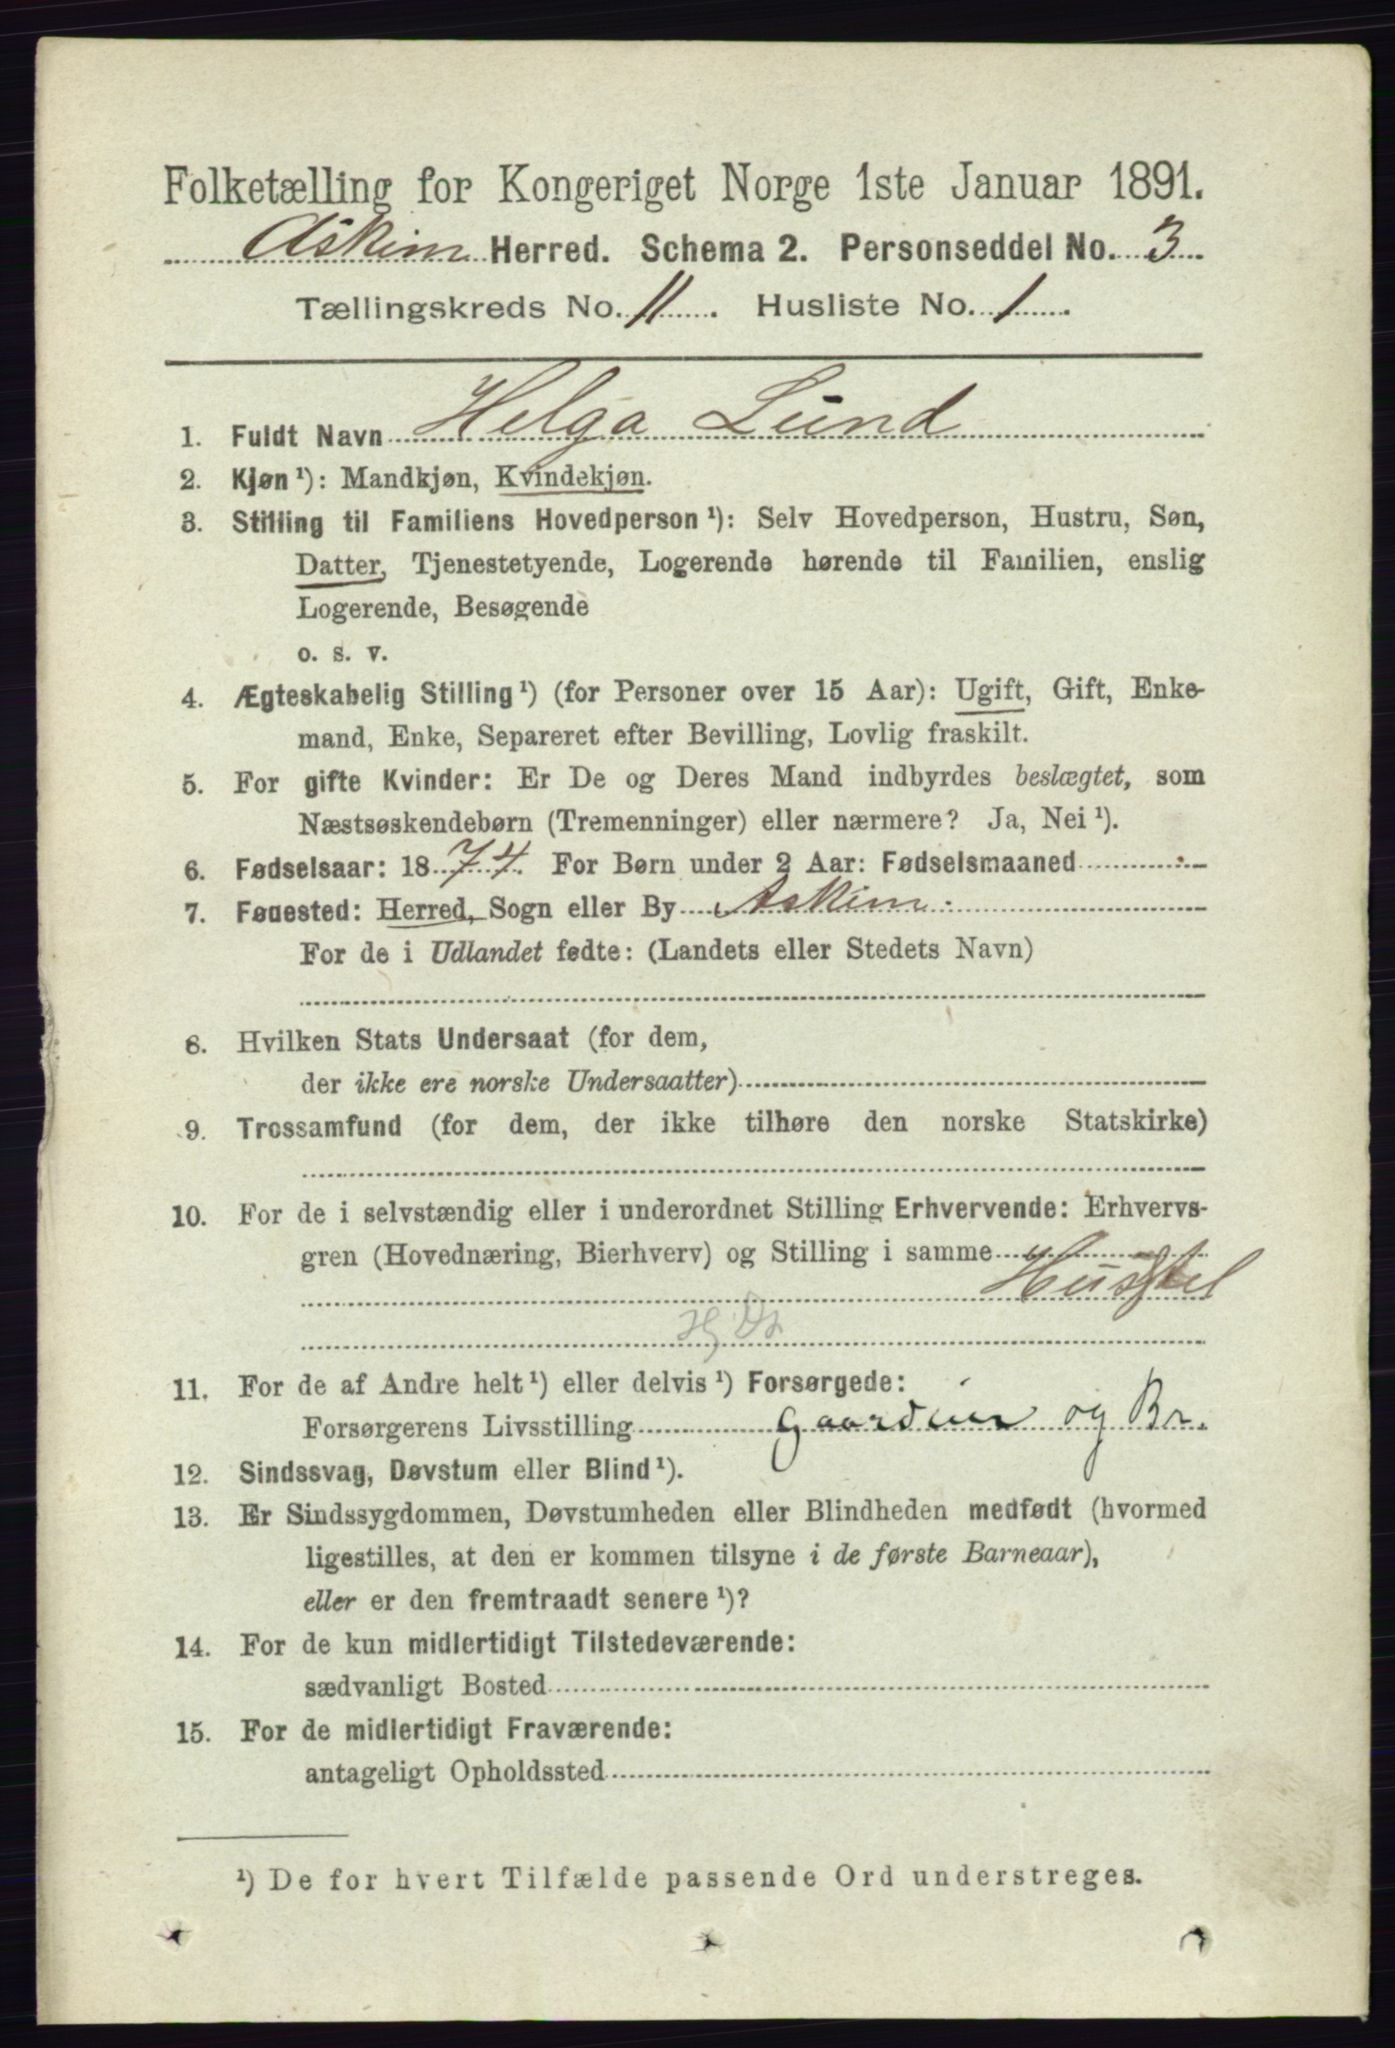 Folketælling for Kongeriget Norge 1ste Januar 1891.
Askim Herred. Schema 2. Personseddel No. 3
Tællingskreds No. 11. Husliste No. 1.
1. Fuldt Navn Helga Lund
2. Kjøn¹): Mandkjøn, Kvindekjøn.
3. Stilling til Familiens Hovedperson¹): Selv Hovedperson, Hustru, Søn,
Datter, Tjenestetyende, Logerende hørende til Familien, enslig
Logerende, Besøgende
o. s. v.
4. Ægteskabelig Stilling¹) (for Personer over 15 Aar): Ugift, Gift, Enke-
mand, Enke, Separeret efter Bevilling, Lovlig fraskilt.
5. For gifte Kvinder: Er De og Deres Mand indbyrdes beslægtet, som
Næstsøskendebørn (Tremenninger) eller nærmere? Ja, Nei¹).
6. Fødselsaar: 1874. For Børn under 2 Aar: Fødselsmaaned
7. Fødested: Herred, Sogn eller By Askim.
For de i Udlandet fødte: (Landets eller Stedets Navn)
8. Hvilken Stats Undersaat (for dem,
der ikke ere norske Undersaatter)
9. Trossamfund (for dem, der ikke tilhøre den norske Statskirke)
10. For de i selvstændig eller i underordnet Stilling Erhvervende: Erhvervs-
gren (Hovednæring, Bierhverv) og Stilling i samme
Husstel
11. For de af Andre helt¹) eller delvis¹) Forsørgede:
Forsørgerens Livsstilling Gaardeier og Br.
12. Sindssvag, Døvstum eller Blind¹).
13. Er Sindssygdommen, Døvstumheden eller Blindheden medfødt (hvormed
ligestilles, at den er kommen tilsyne i de første Barneaar),
eller er den fremtraadt senere¹)?
14. For de kun midlertidigt Tilstedeværende:
sædvanligt Bosted
15. For de midlertidigt Fraværende:
antageligt Opholdssted
¹) De for hvert Tilfælde passende Ord understreges.